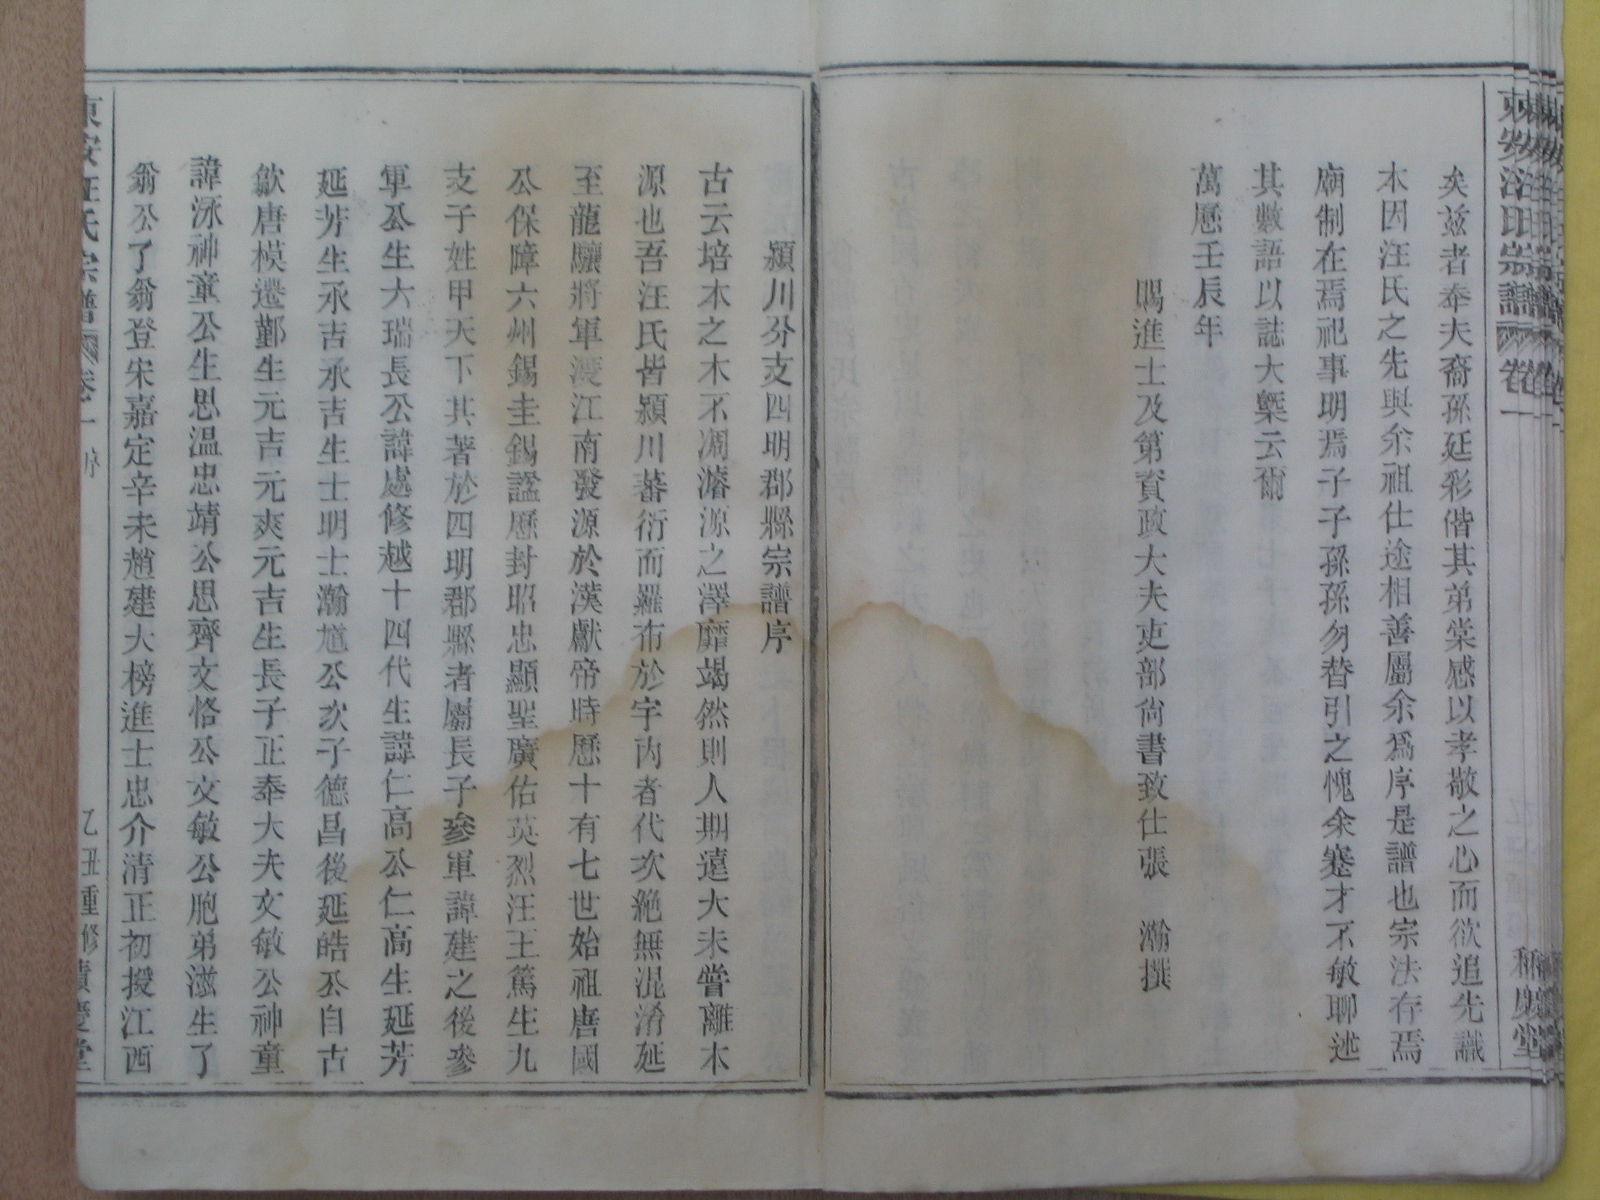 矣茲者泰夫裔孫廷彩偕其弟棠感以孝敬之心而欲追先識
木因汪氏之先與余祖仕途相善屬余爲序是譜也宗法存焉
廟制在焉祀事明焉子子孫孫勿替引之愧余蹇才不敏聊述
其數語以誌大槩云爾
萬曆壬辰年
賜進士及第資政大夫吏部尙書致仕張 瀚撰
潁川分支四明郡縣宗譜序
古云培木之木不凋濬源之澤靡竭然則人期遠大未嘗離木
源也吾汪氏皆潁川蕃衍而羅布於宇內者代次絶無混淆延
至龍驤將軍渡江南發源於漢獻帝時歷十有七世始祖唐國
公保障六州錫圭錫謚歷封昭忠顯聖廣佑英烈汪王篤生九
支子姓甲天下其著於四明郡縣者屬長子參軍諱建之後參
軍公生大瑞長公諱處修越十四代生諱仁高公仁高生延芳
延芳生承吉承吉生士明士瀚尵公次子德昌後延皓公自古
歙唐模遷鄞生元吉元爽元吉生長子正奉大夫文敏公神童
諱洙神童公生思溫忠靖公思齊文恪公文敏公胞弟滋生了
翁公了翁登宋嘉定辛未趙建大榜進士忠介淸正初授江西
東安汪氏宗譜 卷一 序 乙丑重修 積慶堂